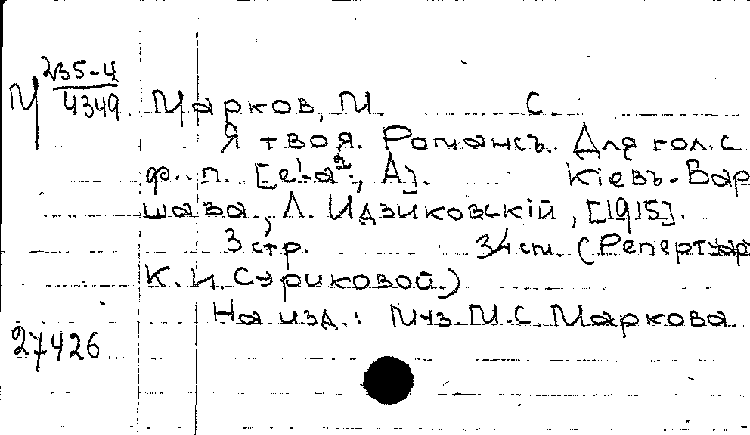 М 235-4
4349
Марков, М. С.
Я твоя. Романсъ. Для гол. с
ф.-п. [e¹-a², А]. Кіевъ-Вар
шава, Л. Идзиковскій, [1915].
3 стр. 34 см. (Репертуар
К. И. Суриковой.)
На изд.: Муз. М. С. Маркова
27426